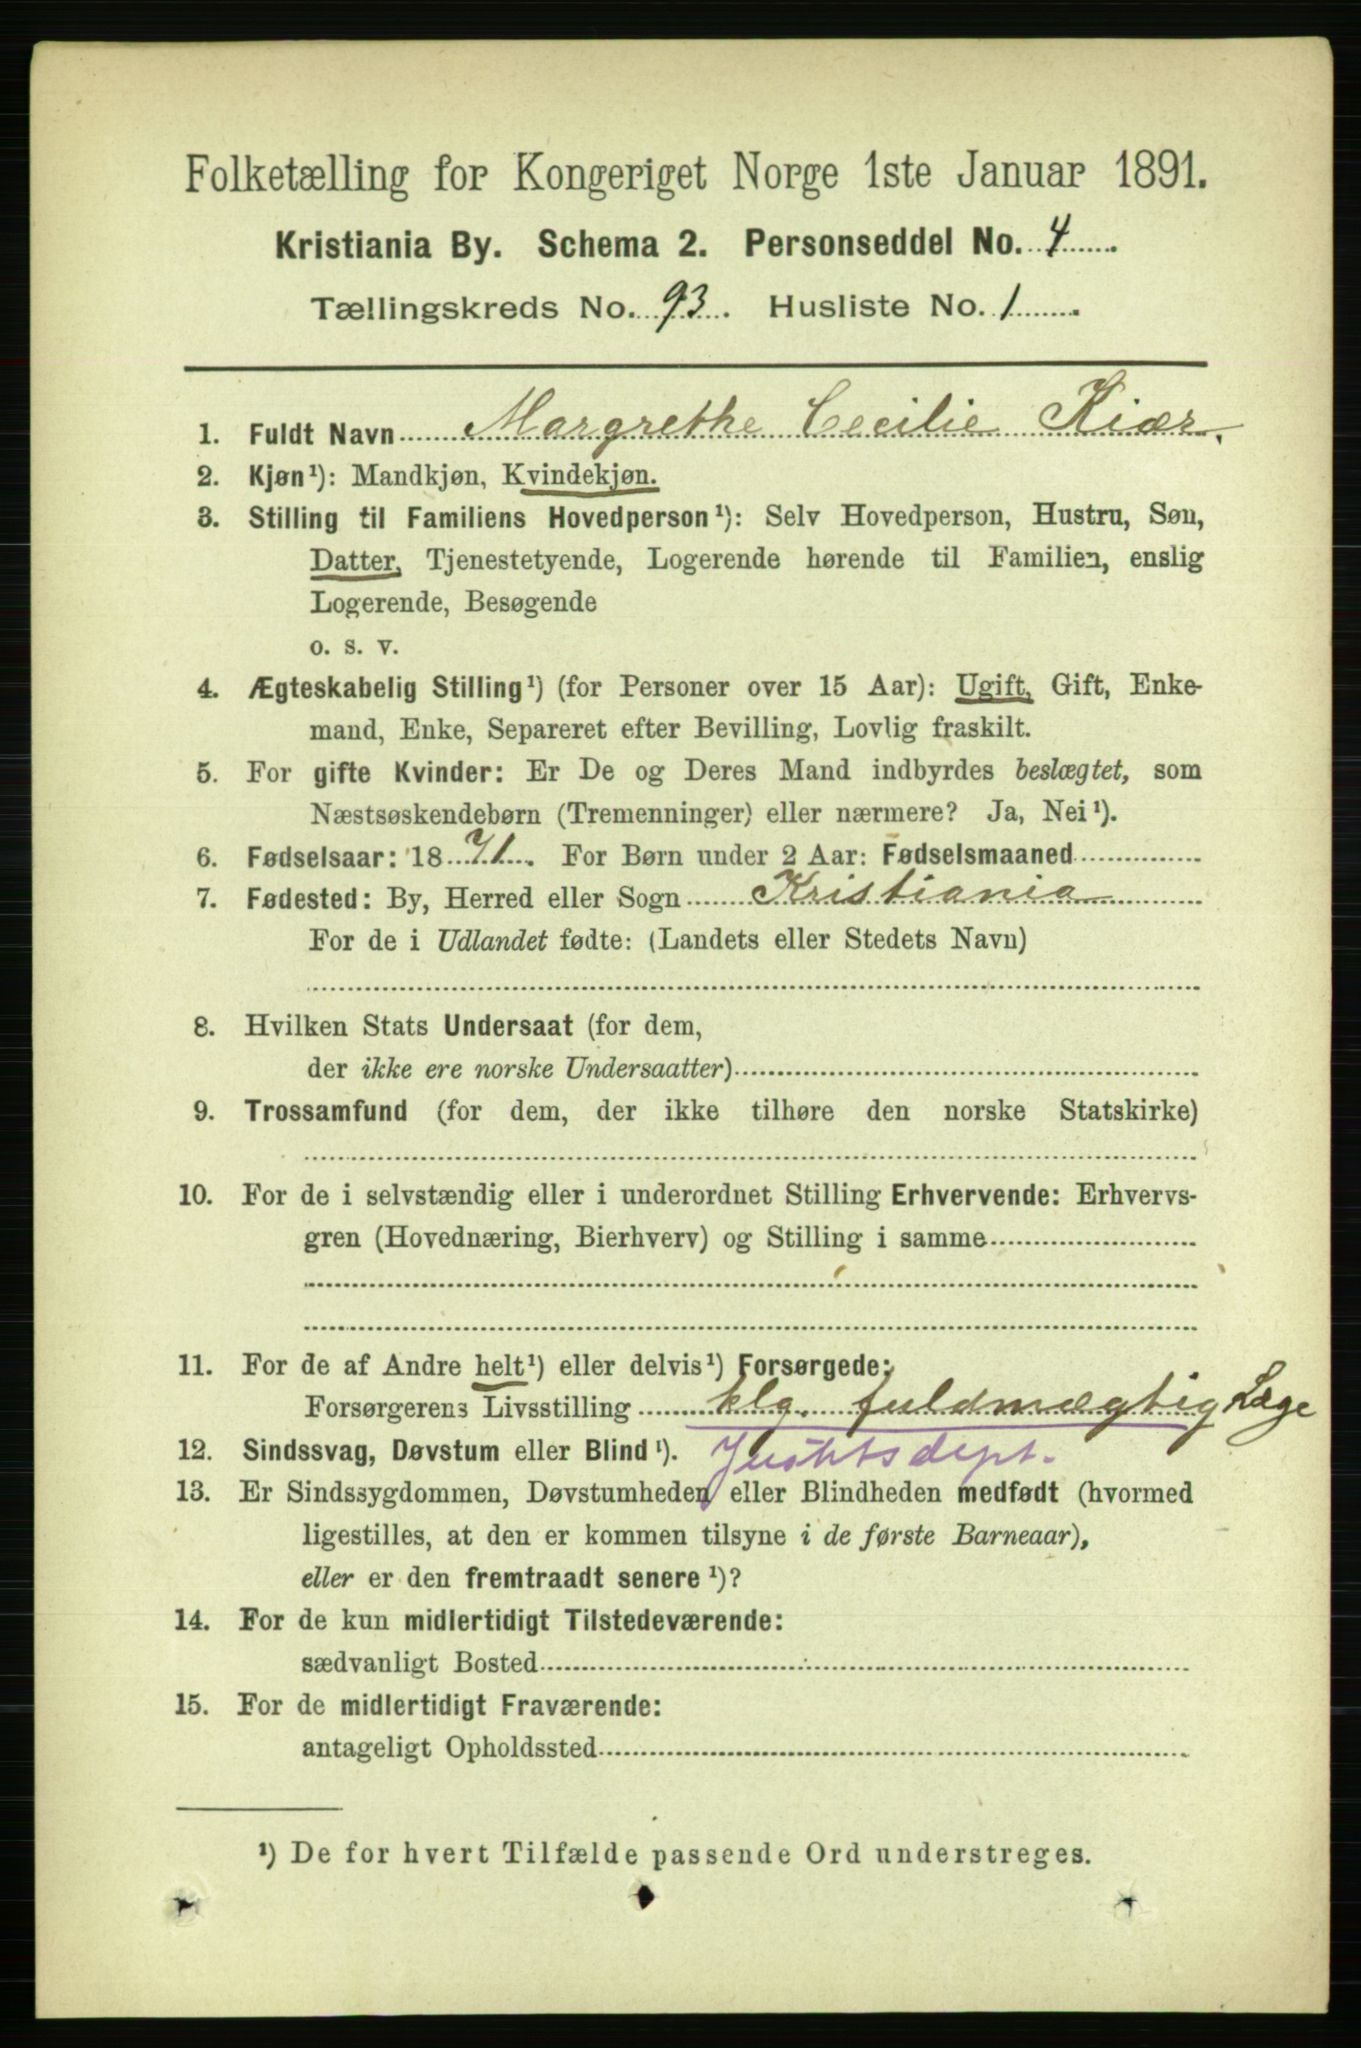 Folketælling for Kongeriget Norge 1ste Januar 1891.
Kristiania By. Schema 2. Personseddel No. 4
Tællingskreds No. 93. Husliste No. 1.
1. Fuldt Navn Margrethe Cecilie Kiær.
2. Kjøn¹): Mandkjøn, Kvindekjøn.
3. Stilling til Familiens Hovedperson¹): Selv Hovedperson, Hustru, Søn,
Datter, Tjenestetyende, Logerende hørende til Familien, enslig
Logerende, Besøgende
o. s. v.
4. Ægteskabelig Stilling¹) (for Personer over 15 Aar): Ugift, Gift, Enke-
mand, Enke, Separeret efter Bevilling, Lovlig fraskilt.
5. For gifte Kvinder: Er De og Deres Mand indbyrdes beslægtet, som
Næstsøskendebørn (Tremenninger) eller nærmere? Ja, Nei¹).
6. Fødselsaar: 1871. For Børn under 2 Aar: Fødselsmaaned
7. Fødested: By, Herred eller Sogn Kristiania
For de i Udlandet fødte: (Landets eller Stedets Navn)
8. Hvilken Stats Undersaat (for dem,
der ikke ere norske Undersaatter)
9. Trossamfund (for dem, der ikke tilhøre den norske Statskirke)
10. For de i selvstændig eller i underordnet Stilling Erhvervende: Erhvervs-
gren (Hovednæring, Bierhverv) og Stilling i samme
11. For de af Andre helt¹) eller delvis¹) Forsørgede:
Forsørgerens Livsstilling klg. fuldmægtig Læge
12. Sindssvag, Døvstum eller Blind¹). Justitsdept.
13. Er Sindssygdommen, Døvstumheden eller Blindheden medfødt (hvormed
ligestilles, at den er kommen tilsyne i de første Barneaar),
eller er den fremtraadt senere¹)?
14. For de kun midlertidigt Tilstedeværende:
sædvanligt Bosted
15. For de midlertidigt Fraværende:
antageligt Opholdssted
¹) De for hvert Tilfælde passende Ord understreges.